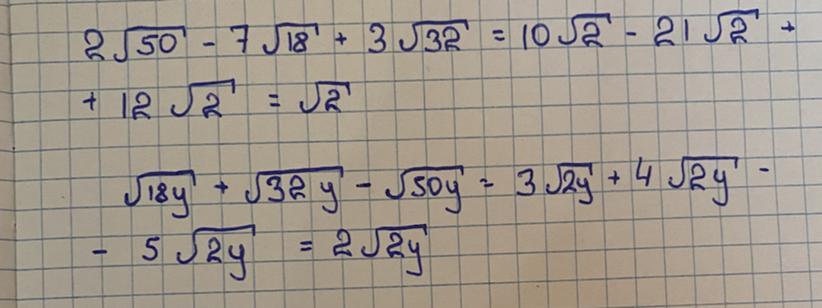 2√50 - 7√18 + 3√32 = 10√2 - 21√2 +
+ 12√2 = √2
√18y + √32y - √50y = 3√2y + 4√2y -
- 5√2y = 2√2y